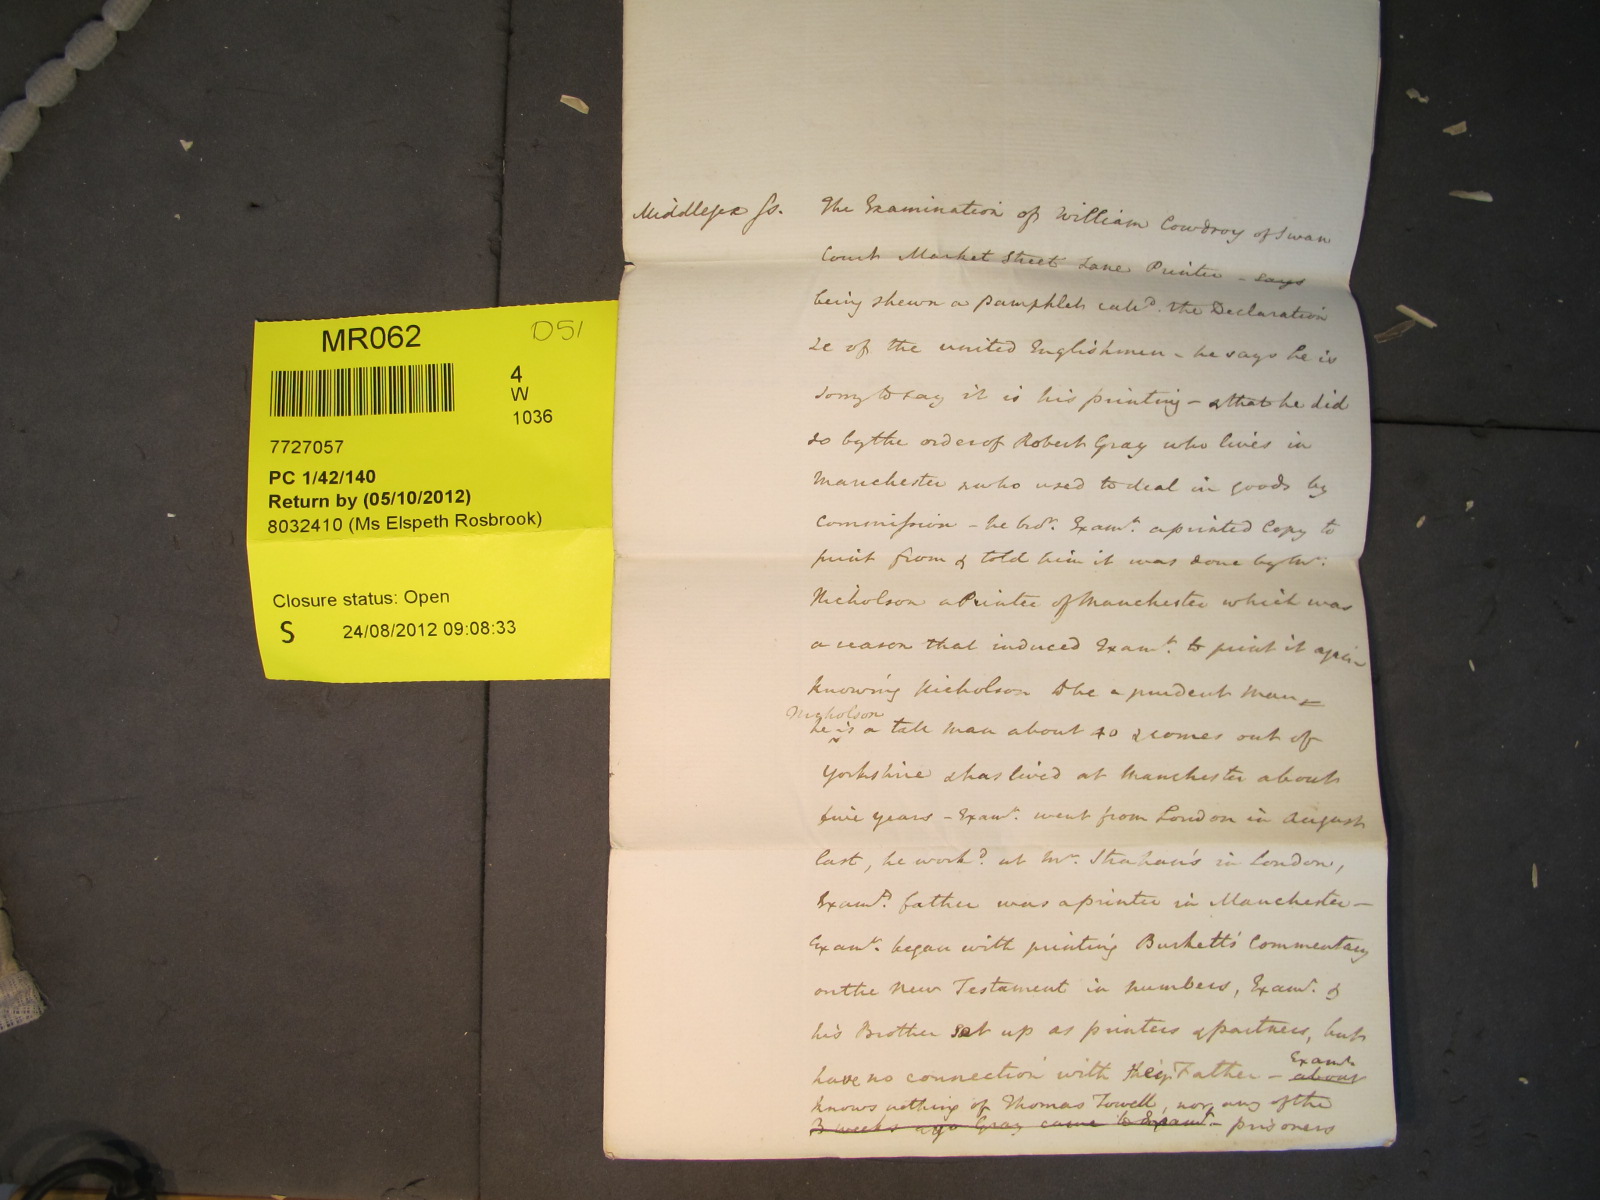 MR062
D51
4
W
1036
7727057
PC 1/42/140
Return by (05/10/2012)
8032410 (Ms Elspeth Rosbrook)
Closure status: Open
S 24/08/2012 09:08:33
Middlesex Ss. The Examination of William Cowdroy of Swan
Court Market Street Lane Printer - says
being shewn a Pamphlet call'd. the Declaration
&c of the united Englishmen - he says he is
sorry to say it is his printing - & that he did
so by the order of Robert Gray who lives in
Manchester & who used to deal in goods by
Commission - he bro't. Exam't. a printed Copy to
print from & told him it was done by Mr.
Nicholson a Printer of Manchester which was
a reason that induced Exam't. to print it again
knowing Nicholson to be a prudent Man -
Nicholson
he is a tall Man about 40 & comes out of
Yorkshire & has lived at Manchester about
five years - Exam't. went from London in August
last, he work'd. at Mr. Strahan's in London,
Exam'ts. father was a printer in Manchester -
Exam't. began with printing Burkett's Commentary
on the New Testament in numbers, Exam't. &
his Brother set up as printers & partners, but
have no connection with their Father - about
Exam't.
knows nothing of Thomas Towell, nor any of the
3 weeks ago Gray came to Exam't. - prisoners